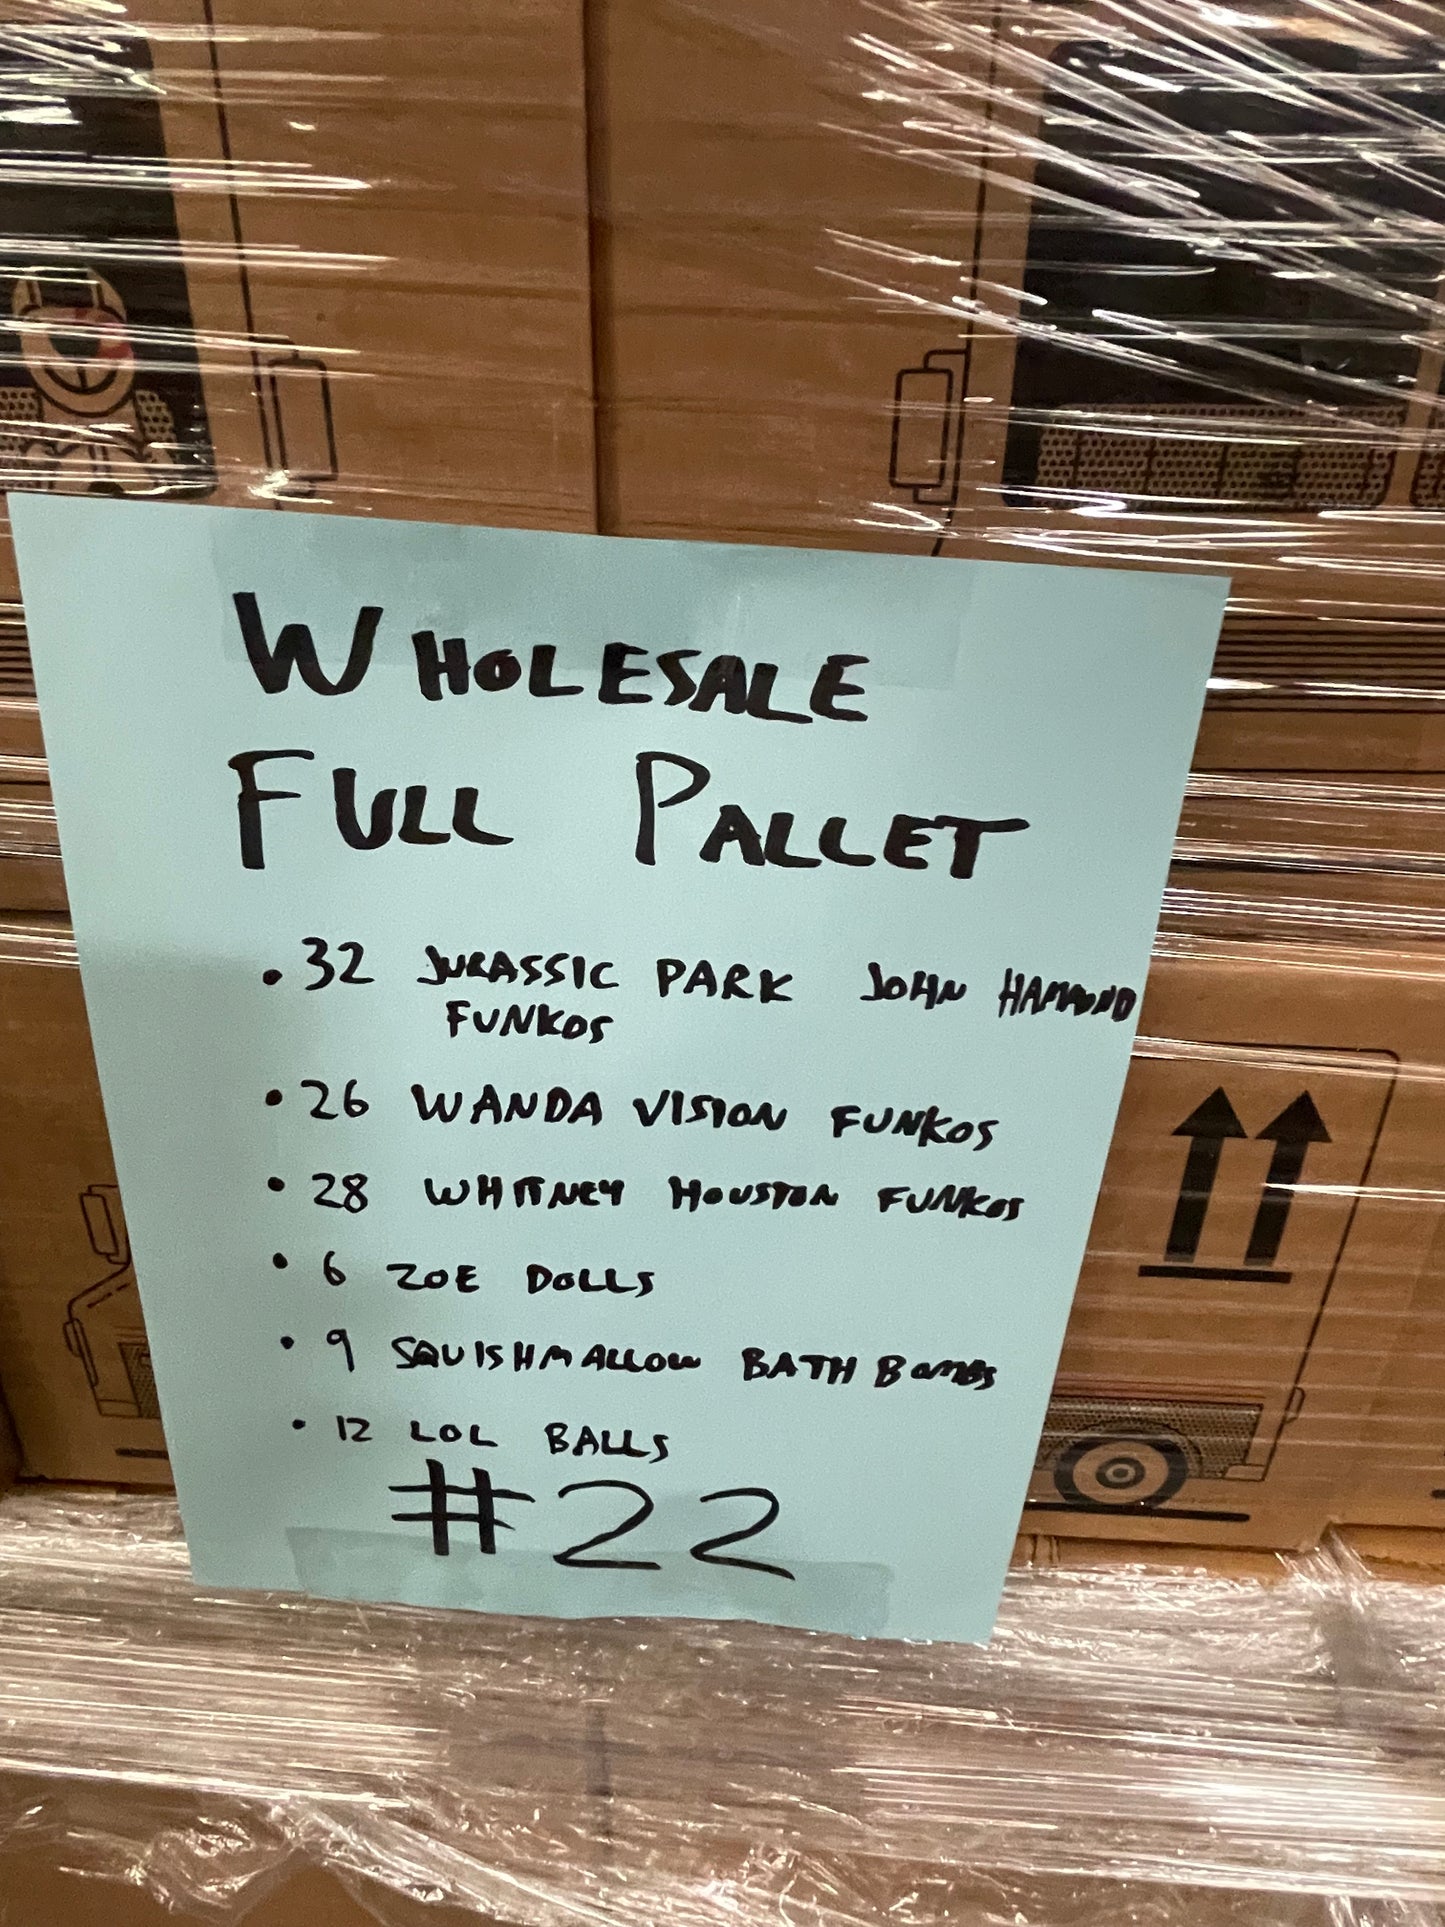 WHOLESALE
FULL PALLET
• 32 JURASSIC PARK JOHN HAMMOND
FUNKOS
• 26 WANDA VISION FUNKOS
• 28 WHITNEY HOUSTON FUNKOS
• 6 ZOE DOLLS
• 9 SQUISHMALLOW BATH BOMBS
• 12 LOL BALLS
#22